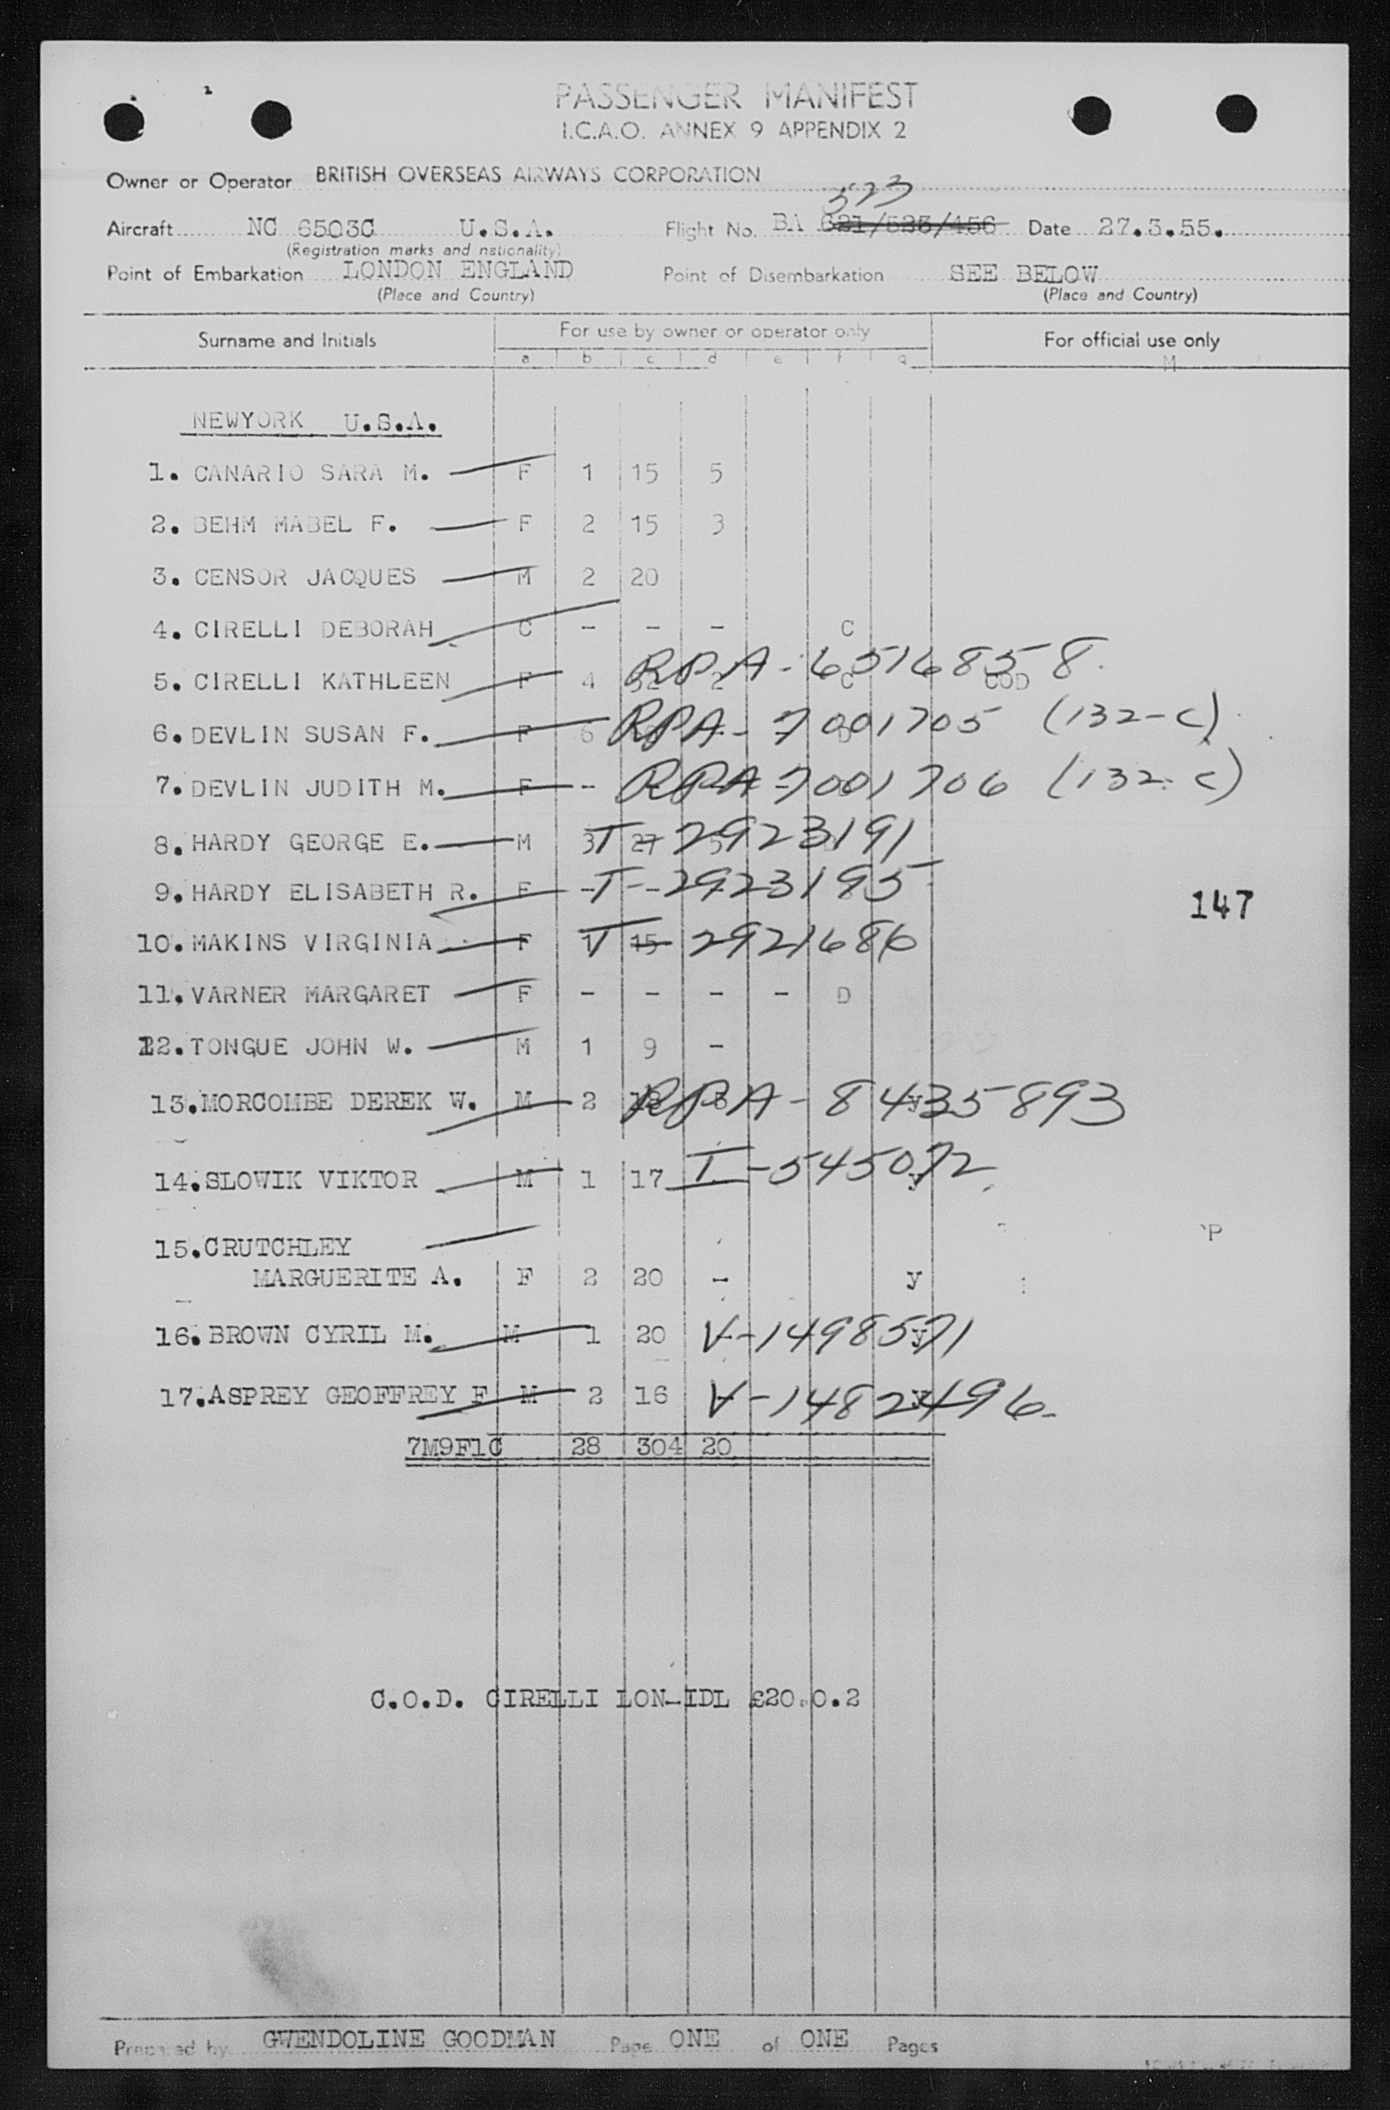 PASSENGER MANIFEST
I.C.A.O. ANNEX 9 APPENDIX 2
Owner or Operator BRITISH OVERSEAS AIRWAYS CORPORATION
523
Aircraft NC 6503C U.S.A. Flight No. BA 621/523/456 Date 27.3.55.
(Registration marks and nationality)
Point of Embarkation LONDON ENGLAND Point of Disembarkation SEE BELOW
(Place and Country) (Place and Country)
Surname and Initials For use by owner or operator only For official use only
a b c d e f g M
NEWYORK U.S.A.
1. CANARIO SARA M. F 1 15 5
2. BEHM MABEL F. F 2 15 3
3. CENSOR JACQUES M 2 20
4. CIRELLI DEBORAH C - - - C
5. CIRELLI KATHLEEN F 4 32 2 C COD RPA-6516858.
6. DEVLIN SUSAN F. F 6 RPA-7001705 (132-C)
7. DEVLIN JUDITH M. F - RPA-7001706 (132-C)
8. HARDY GEORGE E. M 3 27 5 T-2923191
9. HARDY ELISABETH R. F - - T-2923195
147
10. MAKINS VIRGINIA F 1 15 T-2921686
11. VARNER MARGARET F - - - - D
12. TONGUE JOHN W. M 1 9 -
13. MORCOMBE DEREK W. M 2 RPA-8435893 y
14. SLOWIK VIKTOR M 1 17 T-545072 y
15. CRUTCHLEY
P
MARGUERITE A. F 2 20 - y
16. BROWN CYRIL M. M 1 20 V-1498571 y
17. ASPREY GEOFFREY F M 2 16 V-1482496 y
7M9F1C 28 304 20
C.O.D. CIRELLI LON-IDL £20.0.2
Prepared by GWENDOLINE GOODMAN Page ONE of ONE Pages